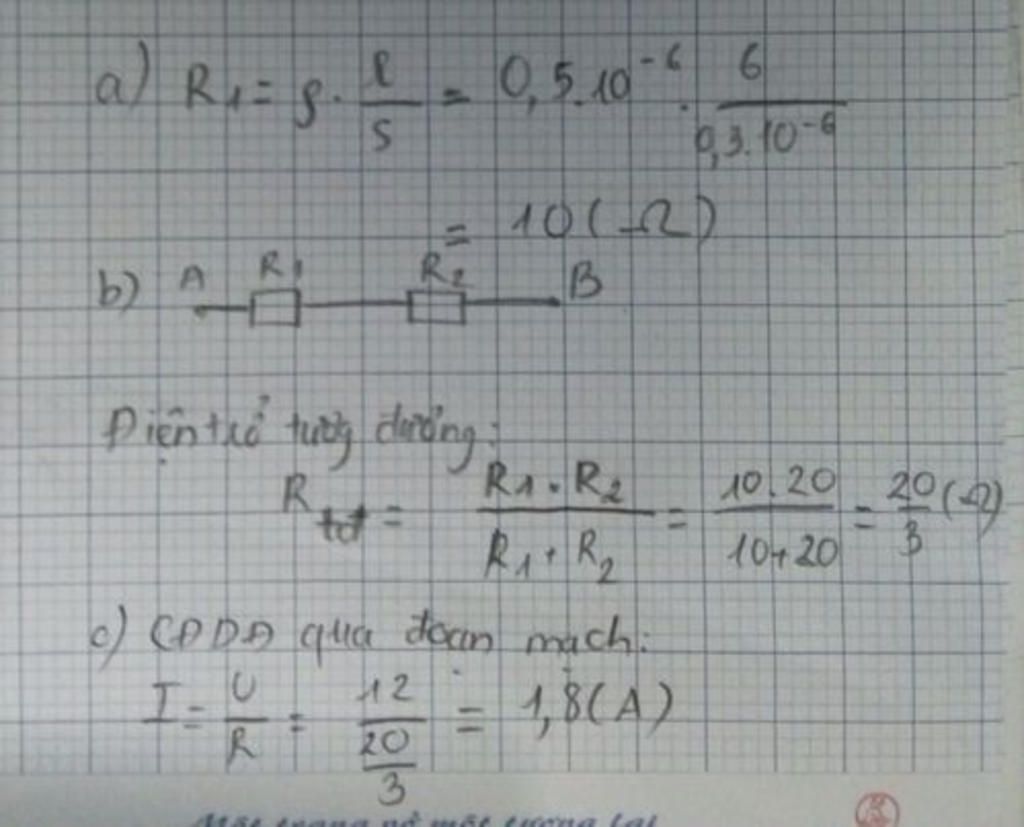 a) R₁ = ρ . l/S = 0,5.10⁻⁶ . 6/0,3.10⁻⁶
= 10 (Ω)
b) A R₁ R₂ B
Điện trở tương đương:
R tđ = R₁ . R₂ / R₁ + R₂ = 10.20 / 10+20 = 20/3 (Ω)
c) CĐDĐ qua đoạn mạch:
I = U/R = 12/(20/3) = 1,8 (A)